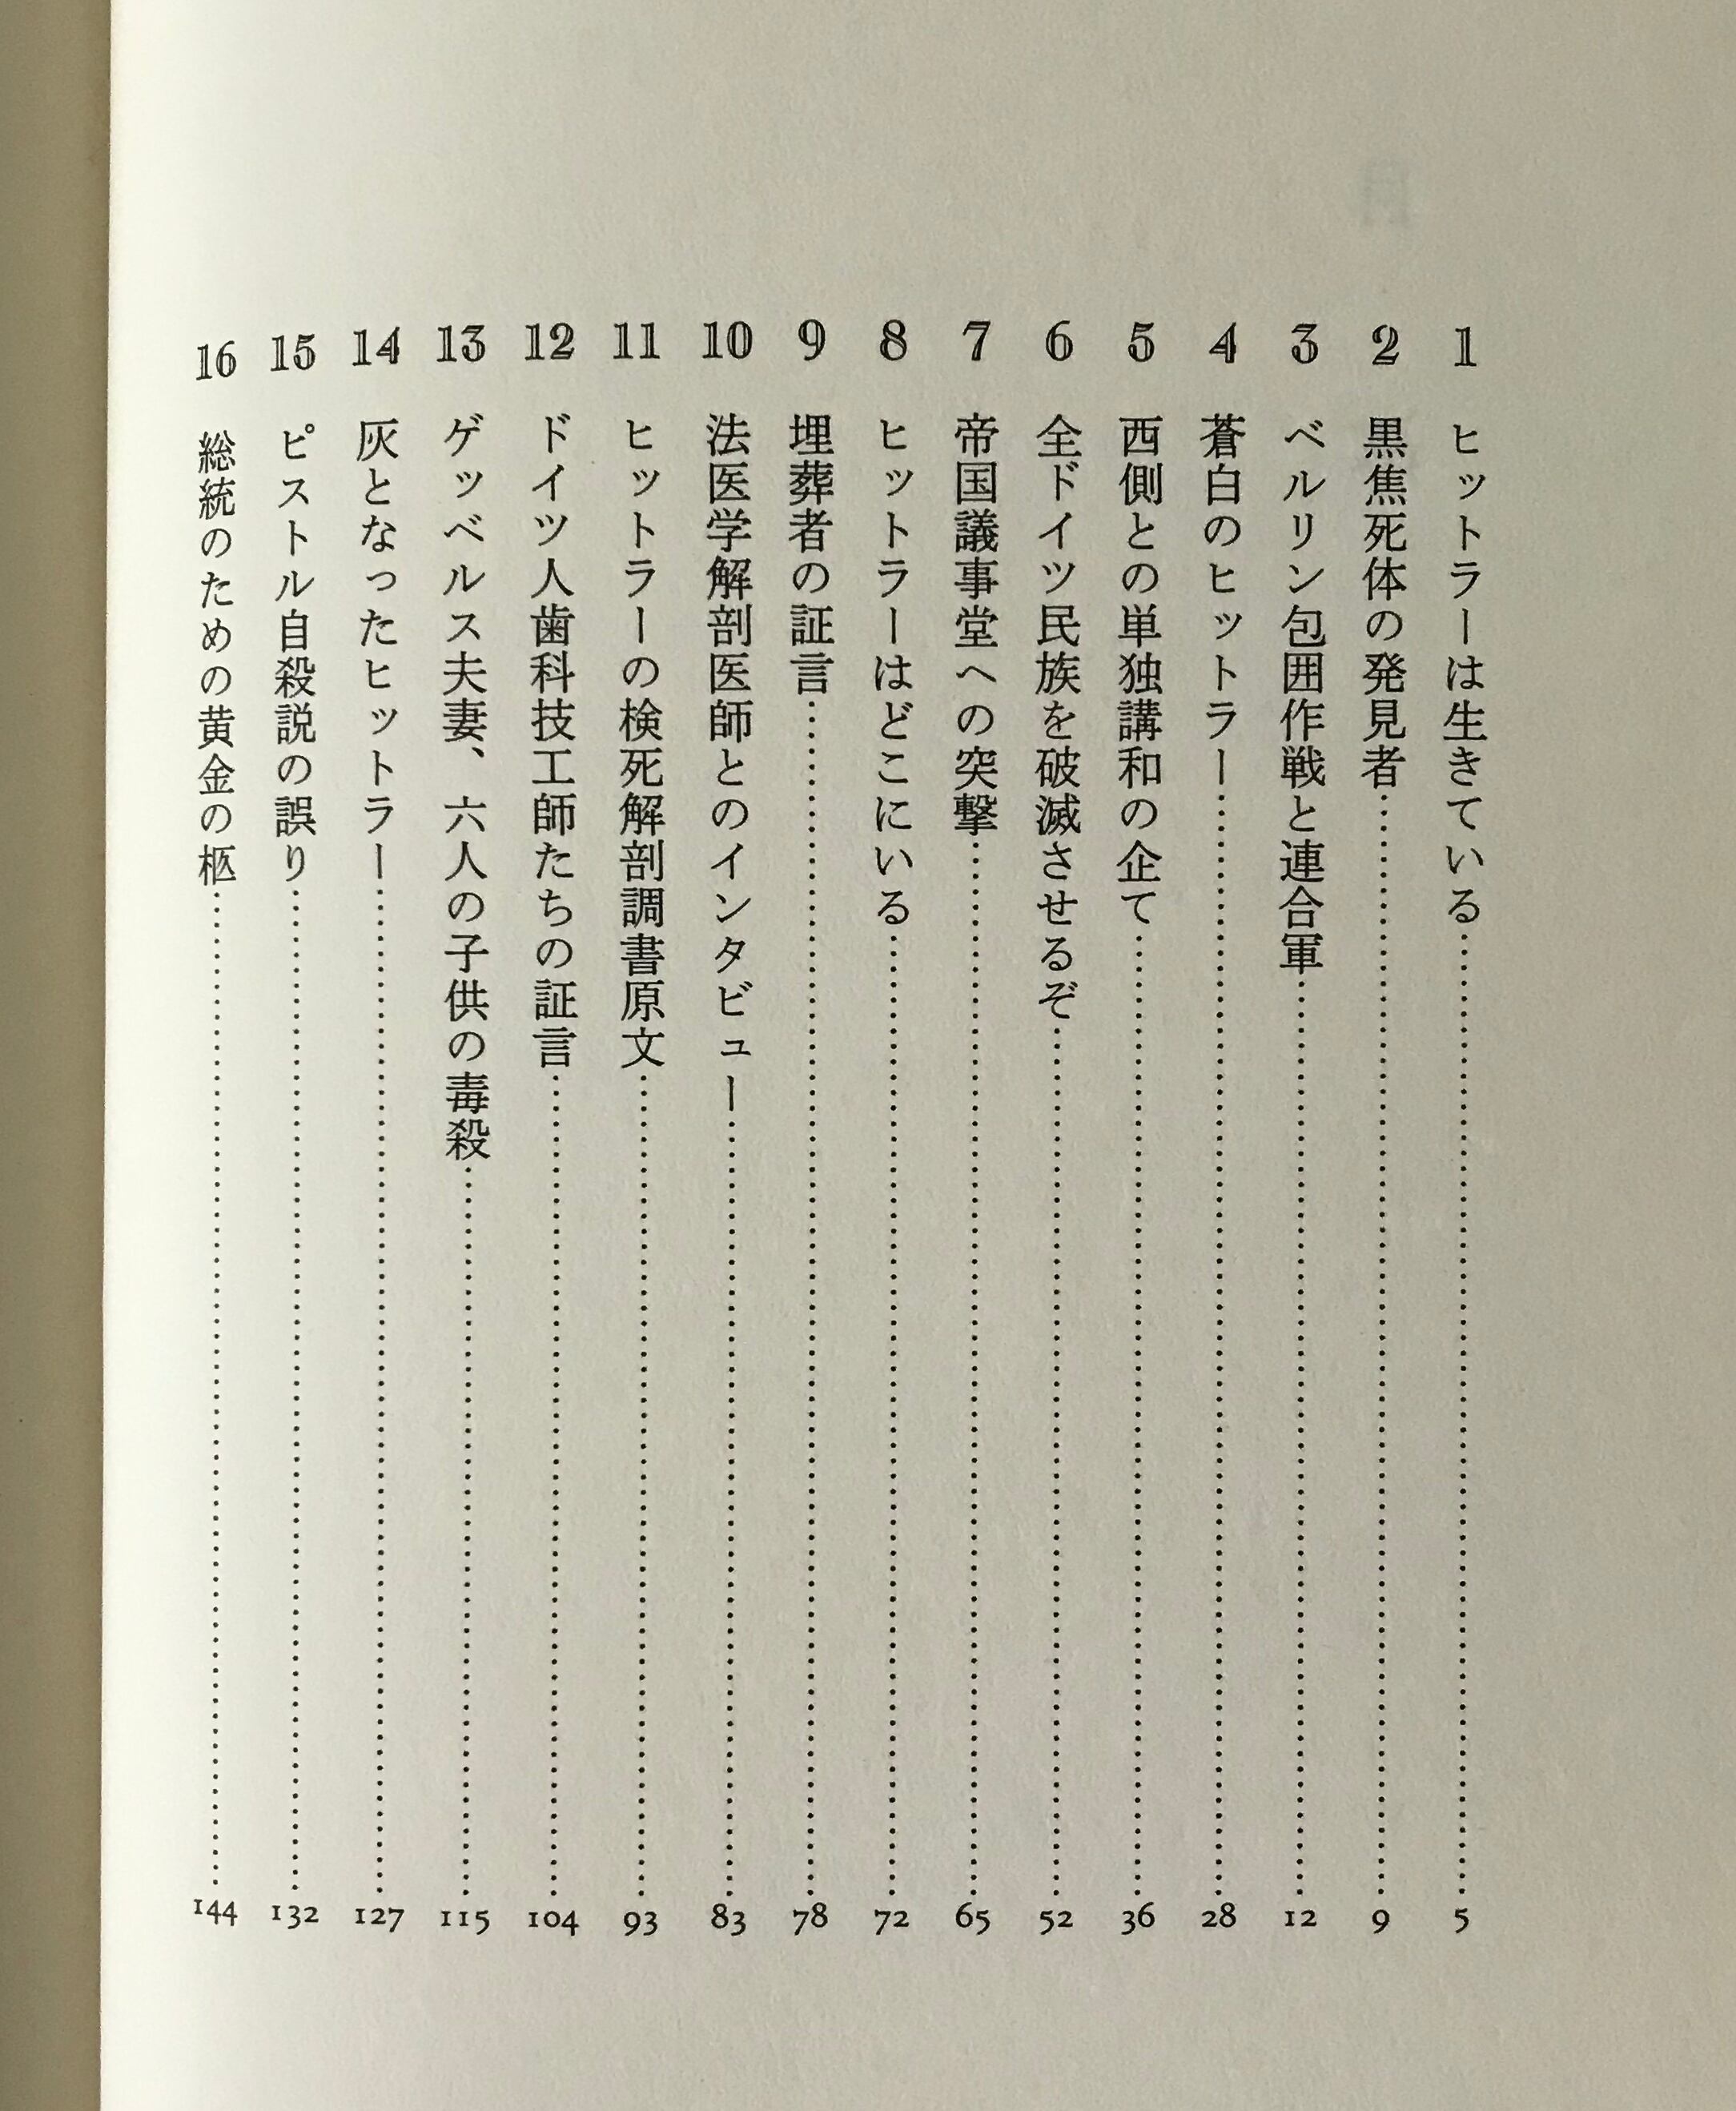 1 ヒットラーは生きている……5
2 黒焦死体の発見者……9
3 ベルリン包囲作戦と連合軍……12
4 蒼白のヒットラー……28
5 西側との単独講和の企て……36
6 全ドイツ民族を破滅させるぞ……52
7 帝国議事堂への突撃……65
8 ヒットラーはどこにいる……72
9 埋葬者の証言……78
10 法医学解剖医師とのインタビュー……83
11 ヒットラーの検死解剖調書原文……93
12 ドイツ人歯科技工師たちの証言……104
13 ゲッベルス夫妻、六人の子供の毒殺……115
14 灰となったヒットラー……127
15 ピストル自殺説の誤り……132
16 総統のための黄金の柩……144